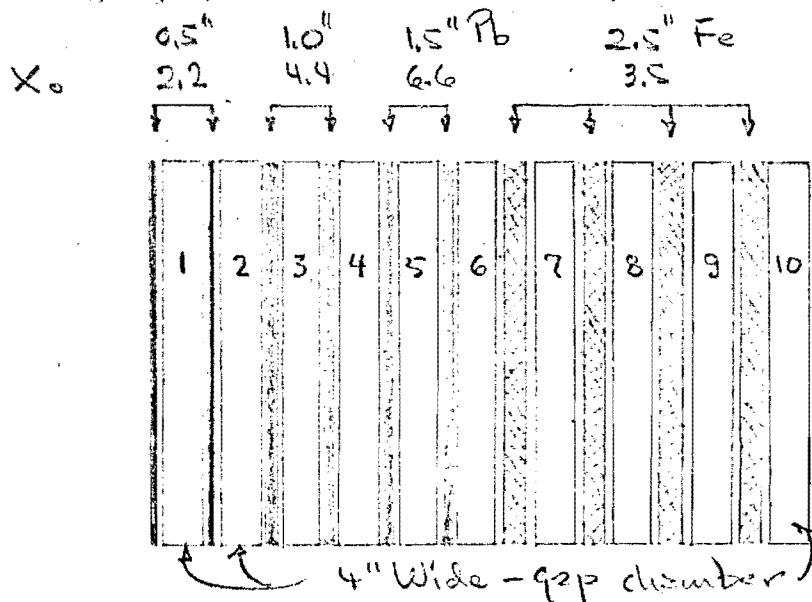 0.5" 1.0" 1.5" Pb 2.5" Fe
X₀ 2.2 4.4 6.6 3.5
1 2 3 4 5 6 7 8 9 10
4" Wide-gap chamber